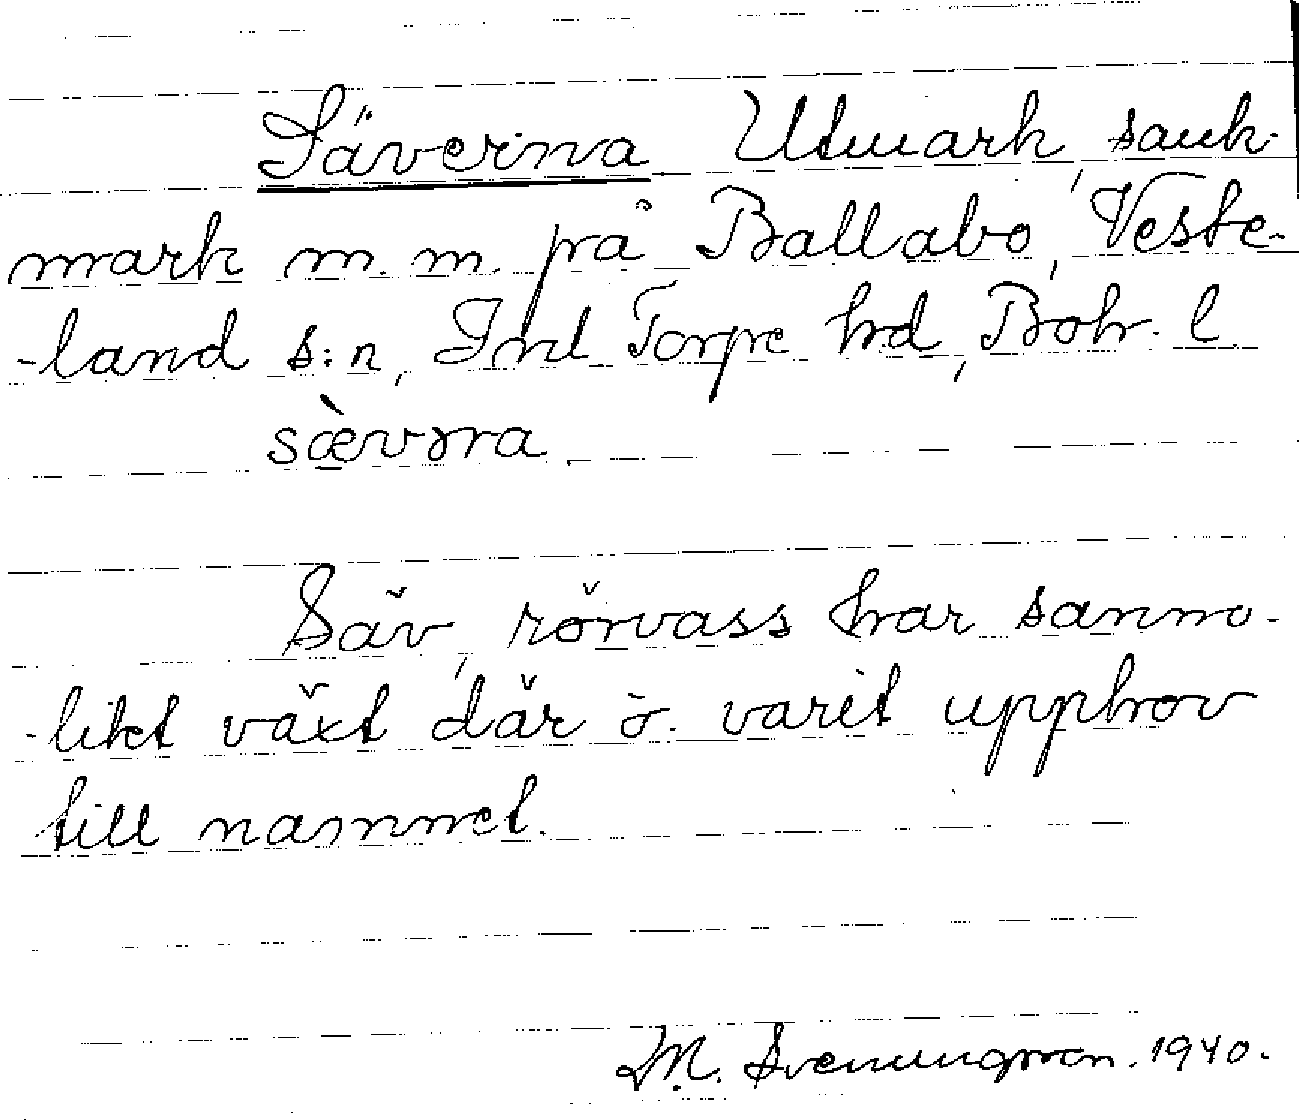 Säverna Utmark, sank-
mark m. m. på Ballabo, Veste-
-land s:n, Inl Torpe hd, Boh. l.
sæ̀vəna.
Säv, rörvass har sanno-
-likt växt där o. varit upphov
till namnet.
M. Svenungsson. 1940.